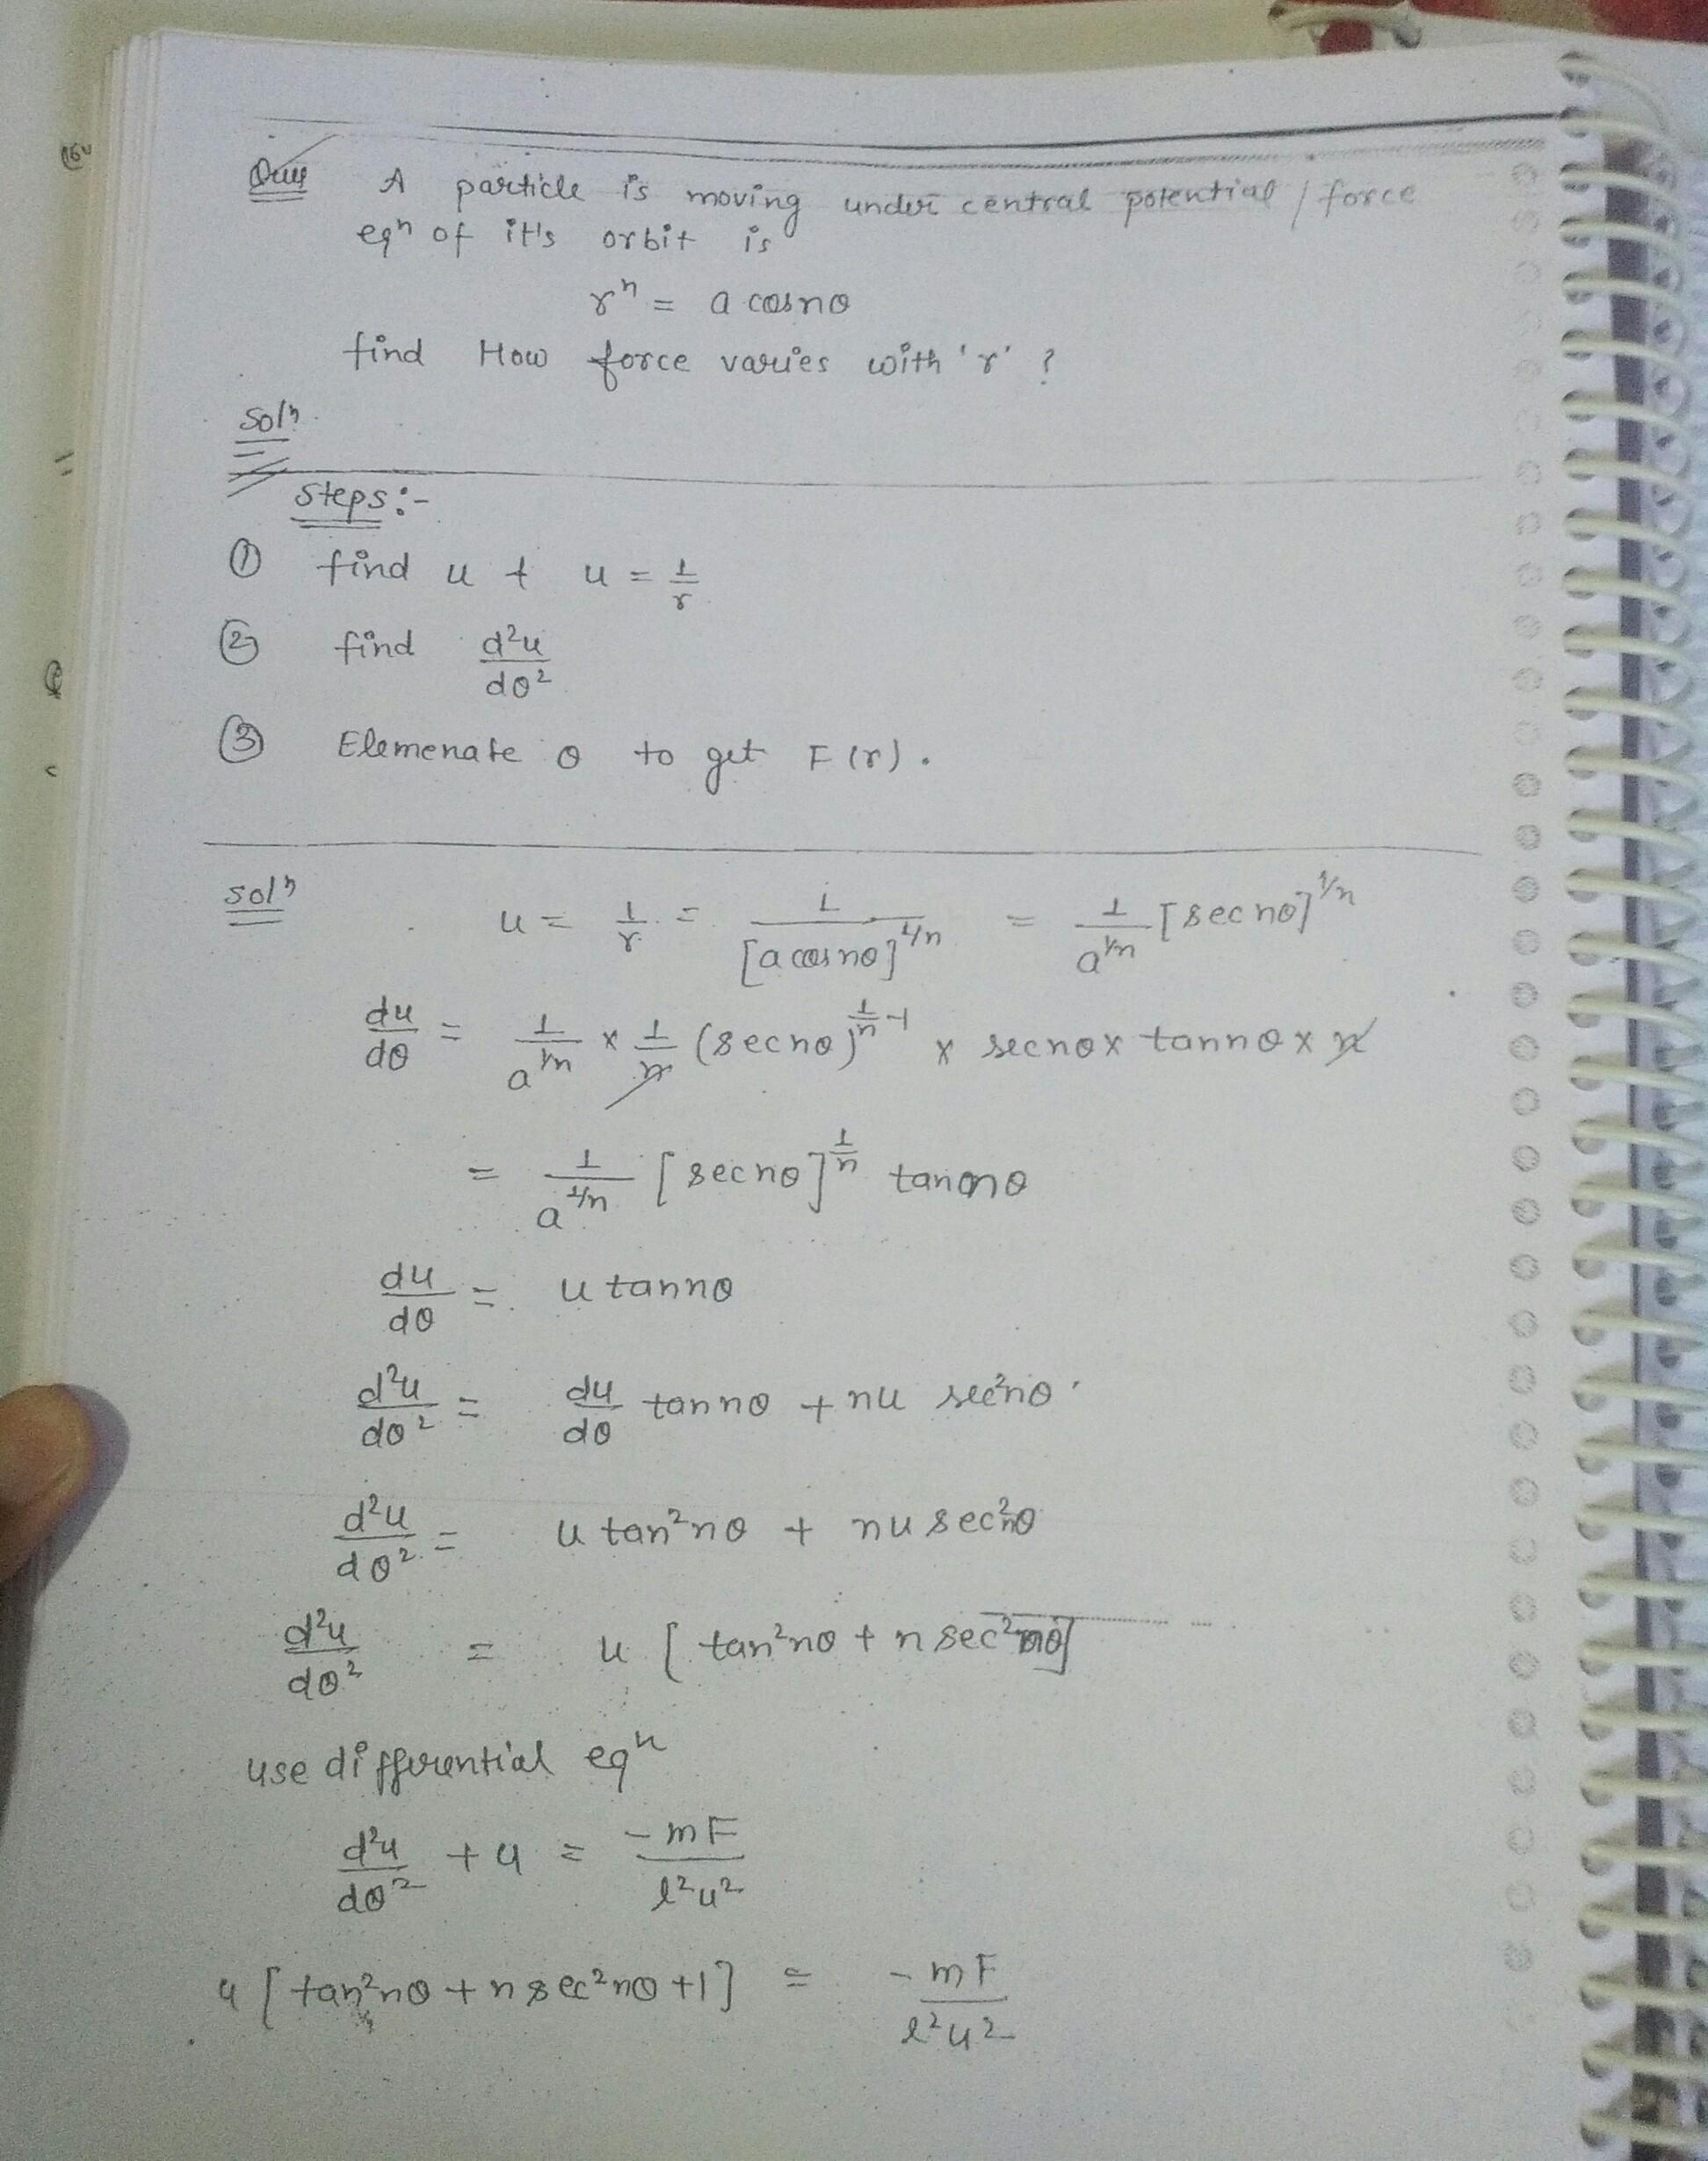 Ques A particle is moving under central potential / force
eqn of it's orbit is
rⁿ = a cosnθ
find How force varies with 'r' ?
Solⁿ.
Steps:-
① find u + u = 1/r
② find d²u/dθ²
③ Elemenate θ to get F(r).
solⁿ u = 1/r = 1/[a cosnθ]^1/n = 1/a^1/n [secnθ]^1/n
du/dθ = 1/a^1/n × 1/n (secnθ)^(1/n - 1) × secnθ × tannθ × n
= 1/a^1/n [secnθ]^1/n tannθ
du/dθ = u tannθ
d²u/dθ² = du/dθ tannθ + nu sec²nθ
d²u/dθ² = u tan²nθ + nu sec²nθ
d²u/dθ² = u [tan²nθ + n sec²nθ]
use differential eqⁿ
d²u/dθ² + u = -mF/l²u²
u [tan²nθ + n sec²nθ + 1] = -mF/l²u²